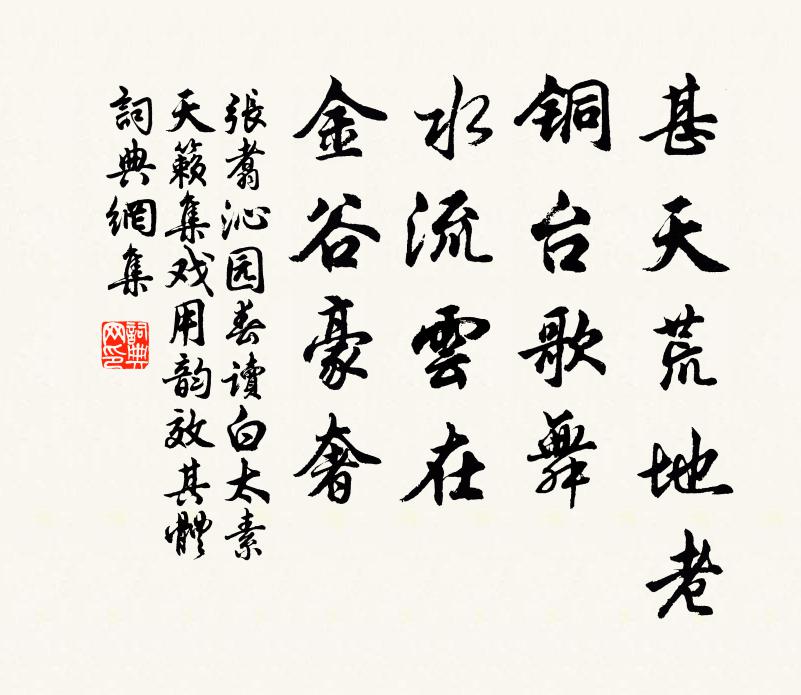 甚天荒地老
铜台歌舞
水流雲在
金谷豪奢
張翥沁园春讀白太素
天籟集戏用韵效其體
詞典網集
詞典网印